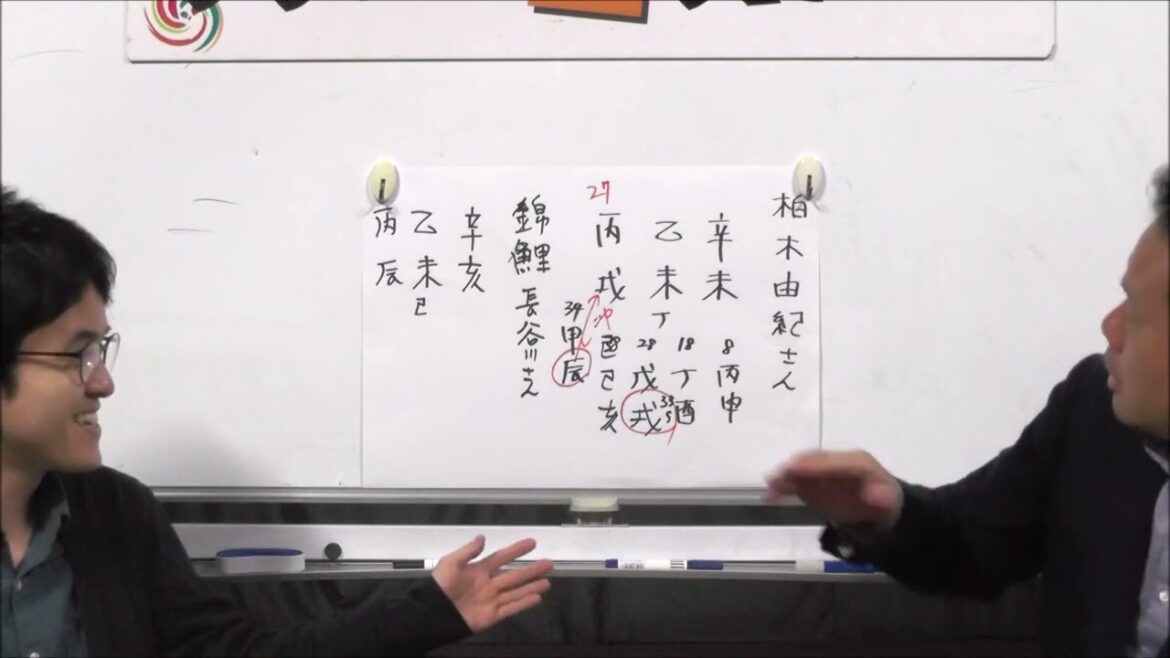 柏木由紀さん
辛未
乙未
丁
27
丙戌
8
丙申
18
丁酉
28
戊戌
33
己亥
34
甲辰
冲
錦鯉 長谷川さん
辛亥
乙未
巳
丙辰